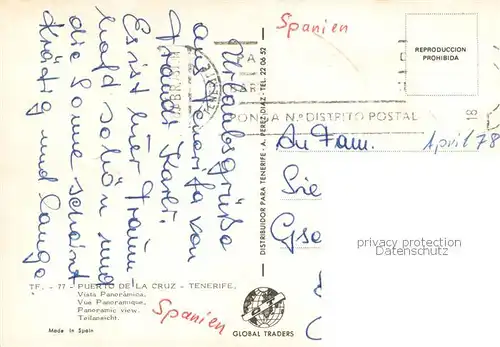 Urlaubsgrüße
aus Teneriffa von
Traudi + Karli.
Es ist hier traum-
haft schön und
die Sonne scheint
kräftig und lange.
Spanien
REPRODUCCION
PROHIBIDA
PONGA N.º DISTRITO POSTAL
18
April 78
An Fam.
Sie
Gse
privacy protection
Datenschutz
DISTRIBUIDOR PARA TENERIFE - A. PEREZ DIAZ - TEL. 22 06 52
TF. - 77 - PUERTO DE LA CRUZ - TENERIFE.
Vista Panorámica.
Vue Panoramique.
Panoramic view.
Teilansicht.
Made in Spain
Spanien
GLOBAL TRADERS